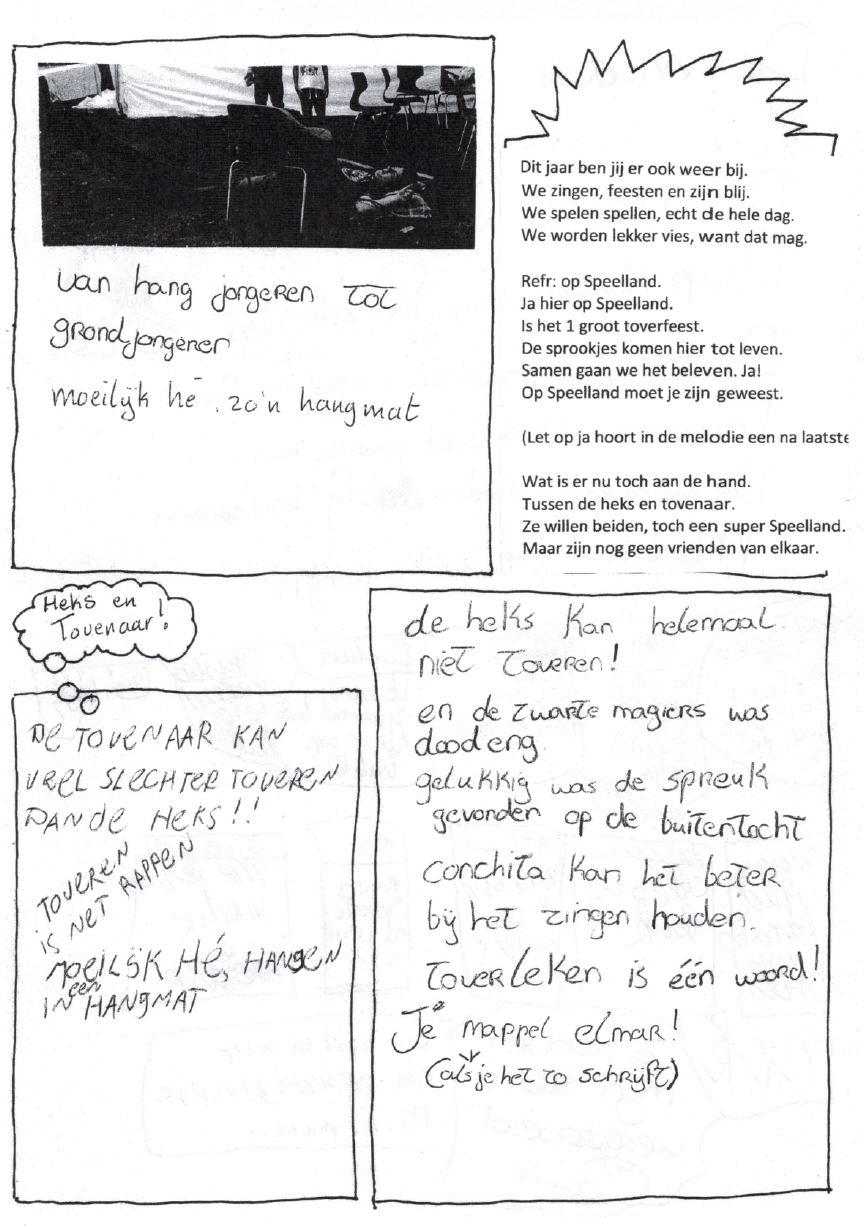 van hang jongeren tot
grondjongeren
moeilijk hé, zo'n hangmat
Dit jaar ben jij er ook weer bij.
We zingen, feesten en zijn blij.
We spelen spellen, echt de hele dag.
We worden lekker vies, want dat mag.
Refr: op Speelland.
Ja hier op Speelland.
Is het 1 groot toverfeest.
De sprookjes komen hier tot leven.
Samen gaan we het beleven. Ja!
Op Speelland moet je zijn geweest.
(Let op ja hoort in de melodie een na laatste
Wat is er nu toch aan de hand.
Tussen de heks en tovenaar.
Ze willen beiden, toch een super Speelland.
Maar zijn nog geen vrienden van elkaar.
Heks en
Tovenaar!
DE TOVENAAR KAN
VEEL SLECHTER TOVEREN
DAN de HEKS!!
TOVEREN
IS NET RAPPEN
MOEILIJK HÉ, HANGEN
IN een HANGMAT
de heks kan helemaal
niet toveren!
en de zwarte magiërs was
dood eng.
gelukkig was de spreuk
gevonden op de buitentocht
Conchita kan het beter
bij het zingen houden.
Toverleken is één woord!
Je mappel elmar!
(als je het zo schrijft)